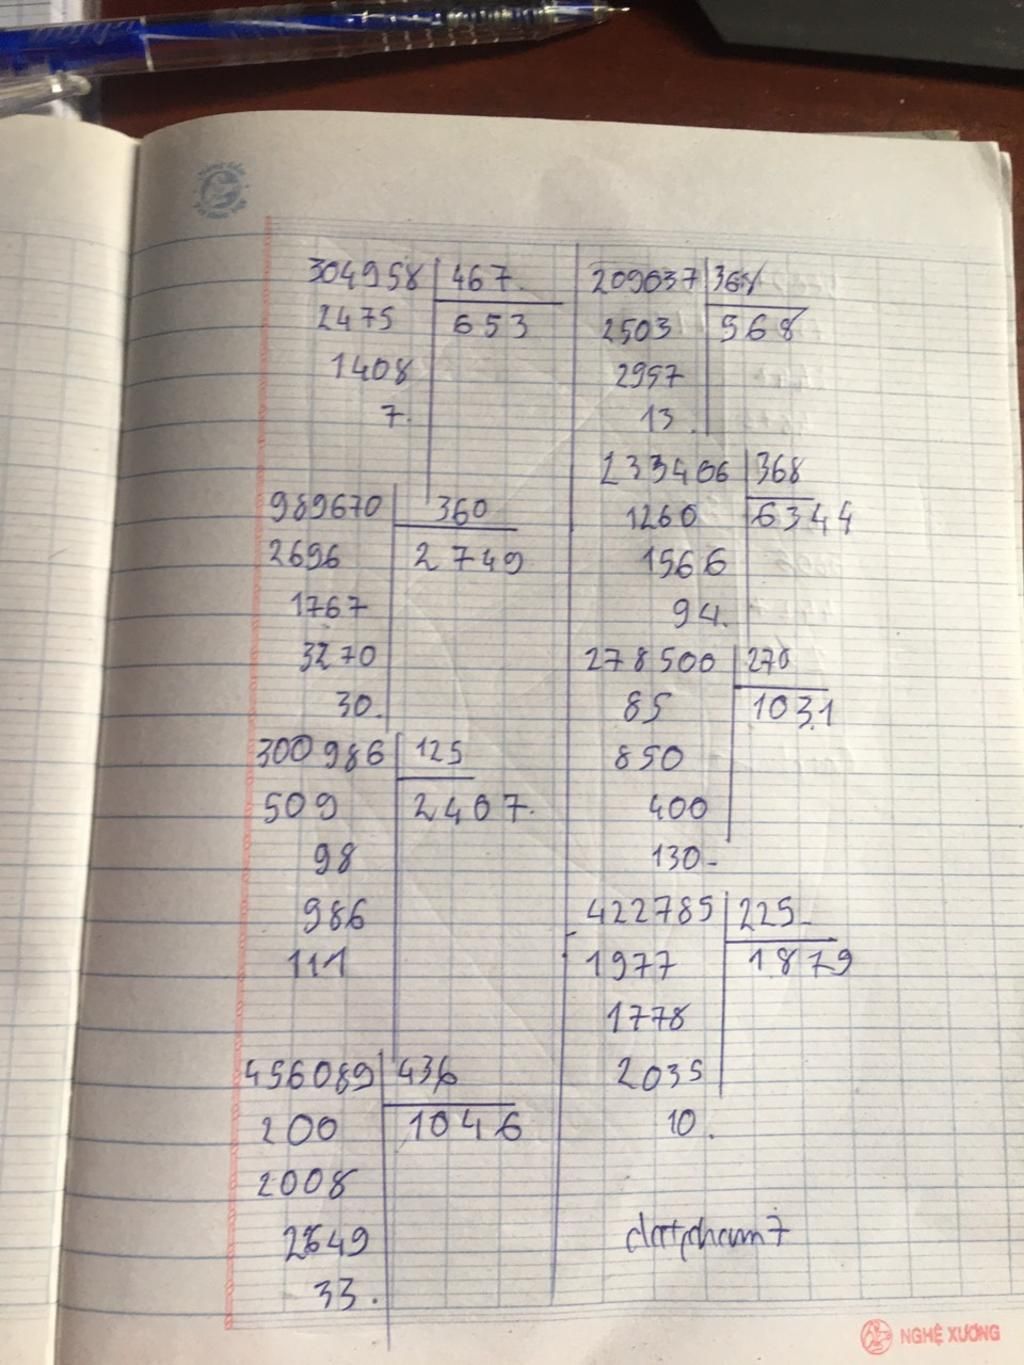 304958 467
2475 653
1408
7.
989670 360
2696 2749
1767
3270
30.
300986 125
509 2407.
98
986
111
456089 436
200 1046
2008
2649
33.
209037 368
2503 568
2957
13.
233406 368
1260 6344
1566
94.
278500 270
85 1031
850
400
130-
422785 225-
1977 1879
1778
2035
10.
datpham7
NGHỆ XƯƠNG